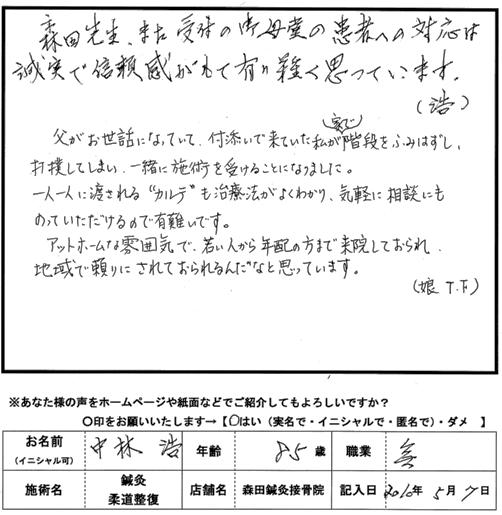 森田先生、また受付の御母堂の患者への対応は
誠実で信頼感がもて有り難く思っています。
(浩)
父がお世話になっていて、付添いで来ていた私が(家で)階段をふみはずし、
打撲してしまい、一緒に施術を受けることになりました。
一人一人に渡される“カルテ”も治療法がよくわかり、気軽に相談にも
のっていただけるので有難いです。
アットホームな雰囲気で、若い人から年配の方まで来院しておられ、
地域で頼りにされておられるんだなと思っています。
(娘 T.F)
※あなた様の声をホームページや紙面などでご紹介してもよろしいですか?
〇印をお願いいたします→【〇はい(実名で・イニシャルで・匿名で)・ダメ 】
お名前 (イニシャル可) 中林 浩 年齢 85歳 職業 無
施術名 鍼灸 柔道整復 店舗名 森田鍼灸接骨院 記入日 2016年 5月 7日